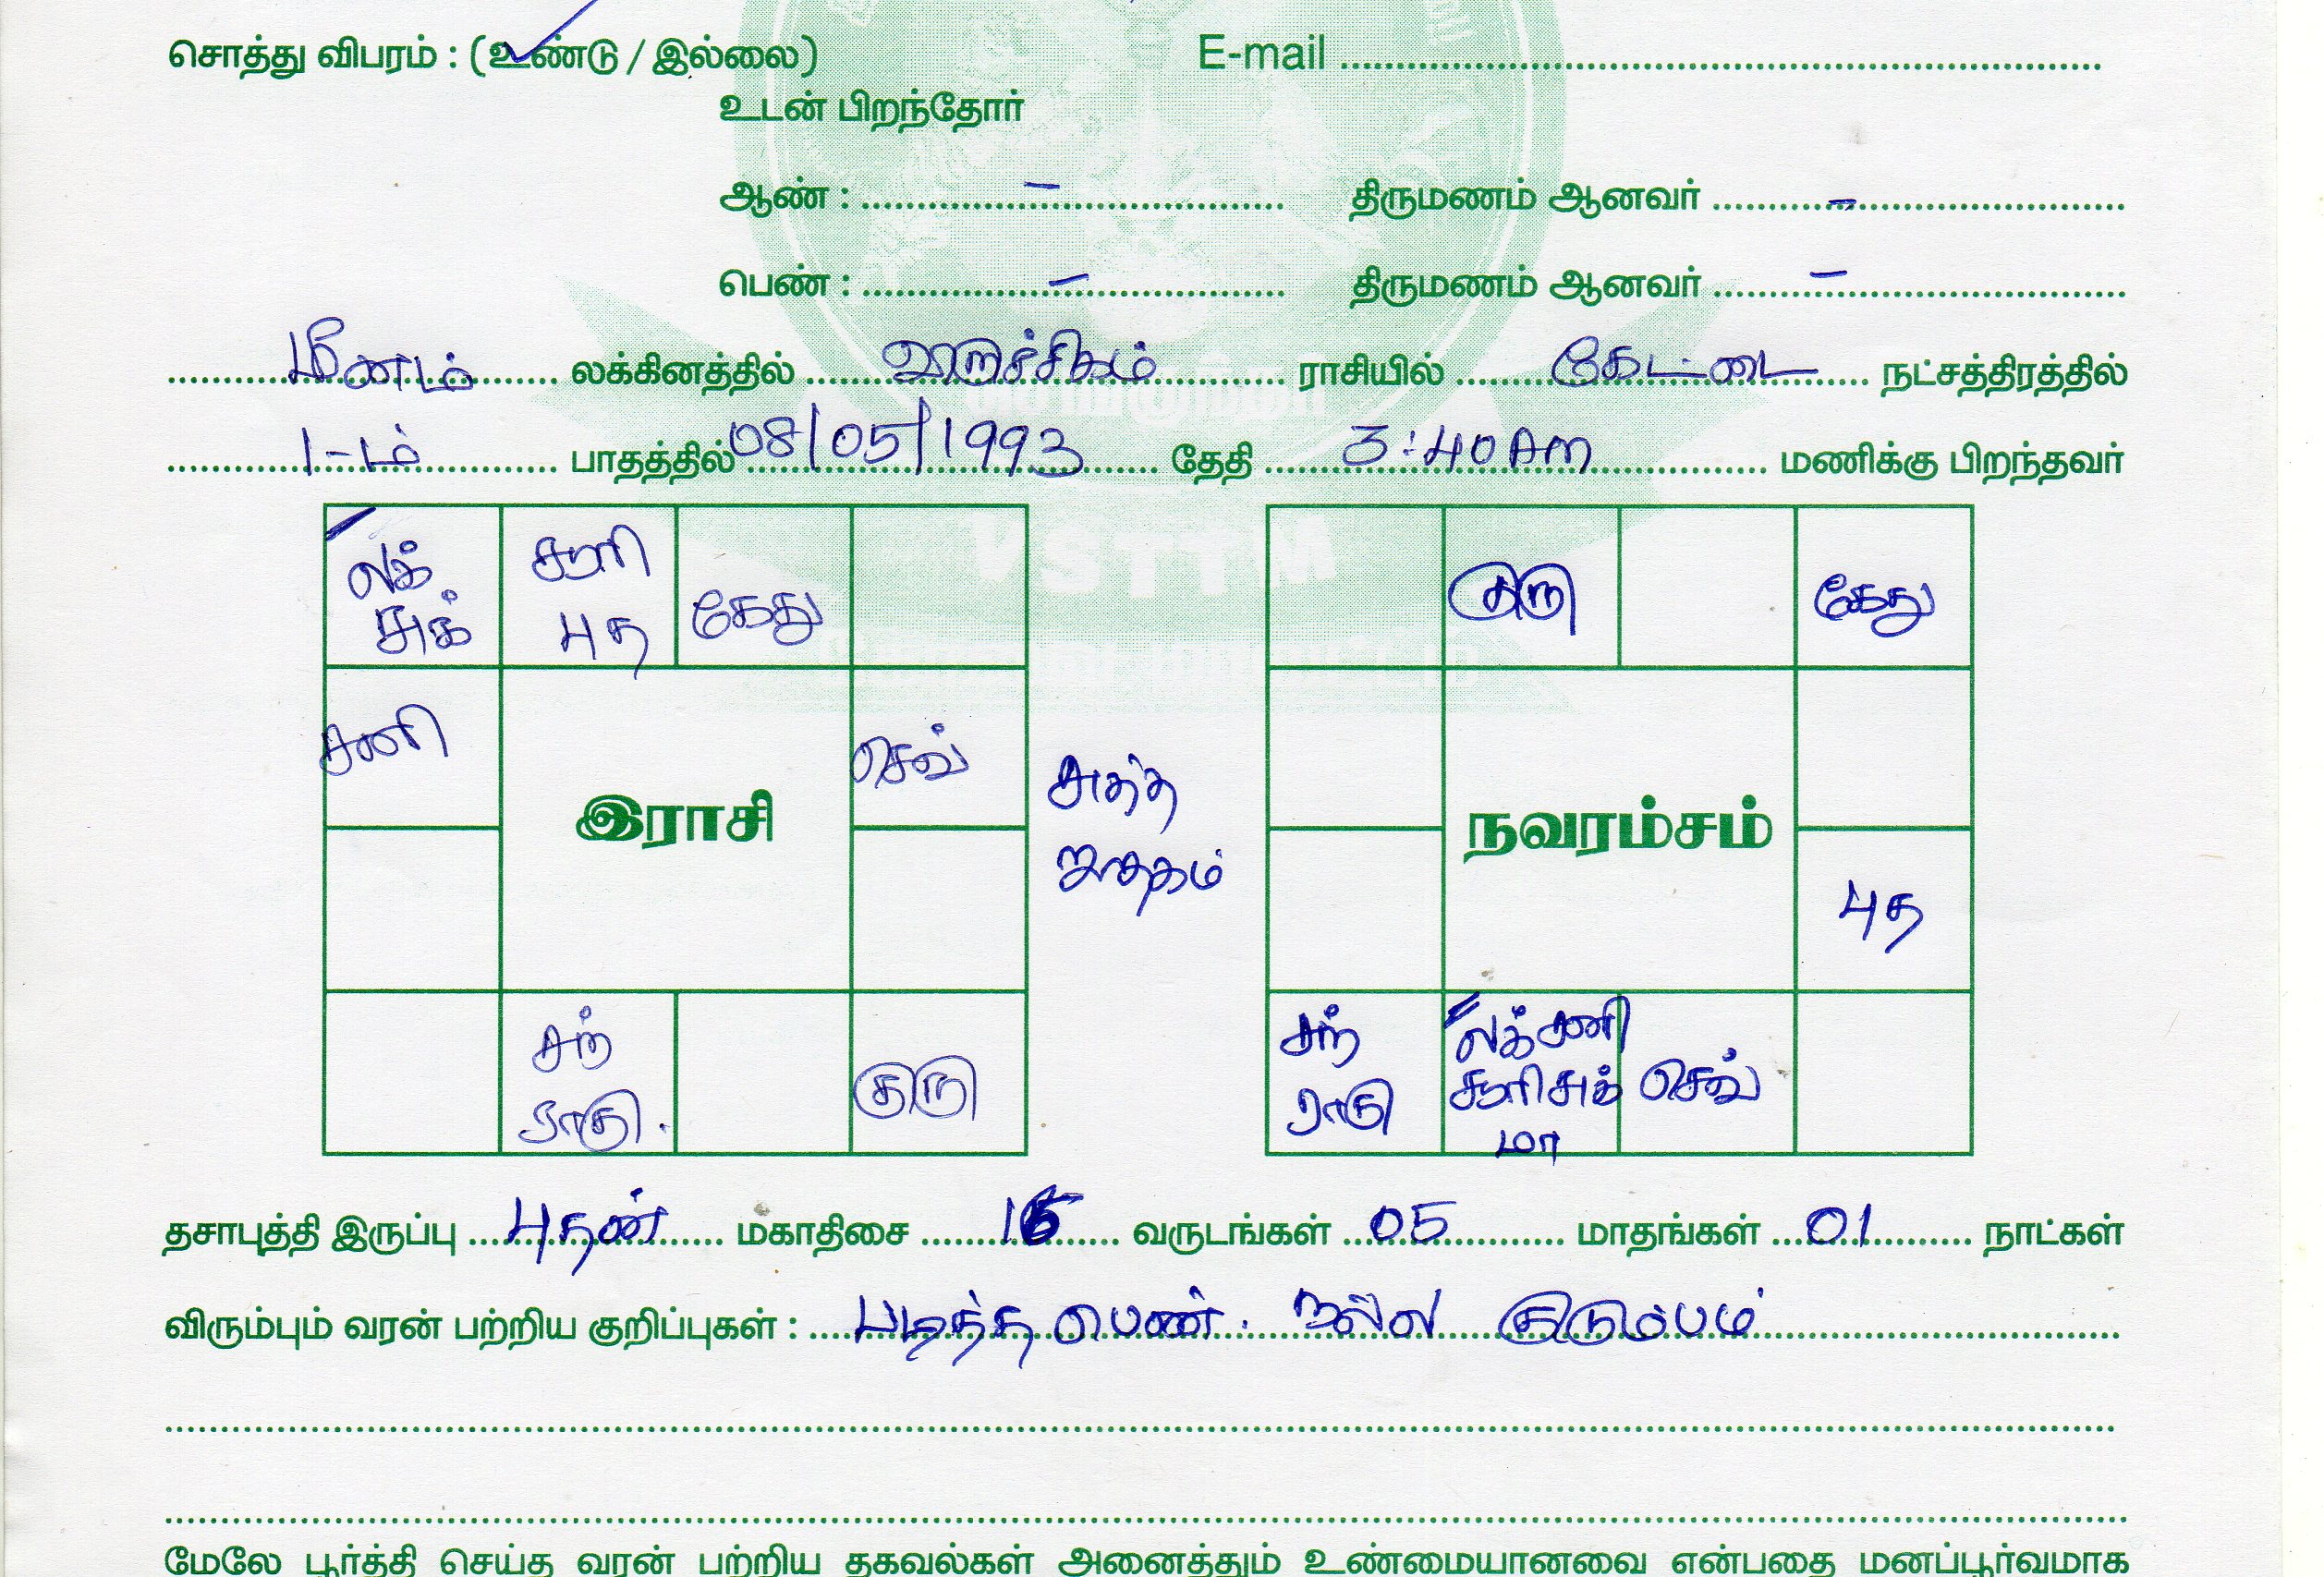 சொத்து விபரம் : (உண்டு / இல்லை) E-mail
உடன் பிறந்தோர்
ஆண் : – திருமணம் ஆனவர் –
பெண் : – திருமணம் ஆனவர் –
மீனம் லக்கினத்தில் விருச்சிகம் ராசியில் கேட்டை நட்சத்திரத்தில்
1-ம் பாதத்தில் 08/05/1993 தேதி 3:40 Am மணிக்கு பிறந்தவர்
லக் சூரி குரு கேது
சுக் புத கேது
சனி செவ் சுத்த
இராசி நவரம்சம்
ஜாதகம் புத
சந் சந் லக் சனி
ராகு குரு ராகு சூரி சுக் செவ்
மா
தசாபுத்தி இருப்பு புதன் மகாதிசை வருடங்கள் 05 மாதங்கள் 01 நாட்கள்
விரும்பும் வரன் பற்றிய குறிப்புகள் : படித்த பெண். நல்ல குடும்பம்
மேலே பூர்த்தி செய்த வரன் பற்றிய தகவல்கள் அனைத்தும் உண்மையானவை என்பதை மனப்பூர்வமாக